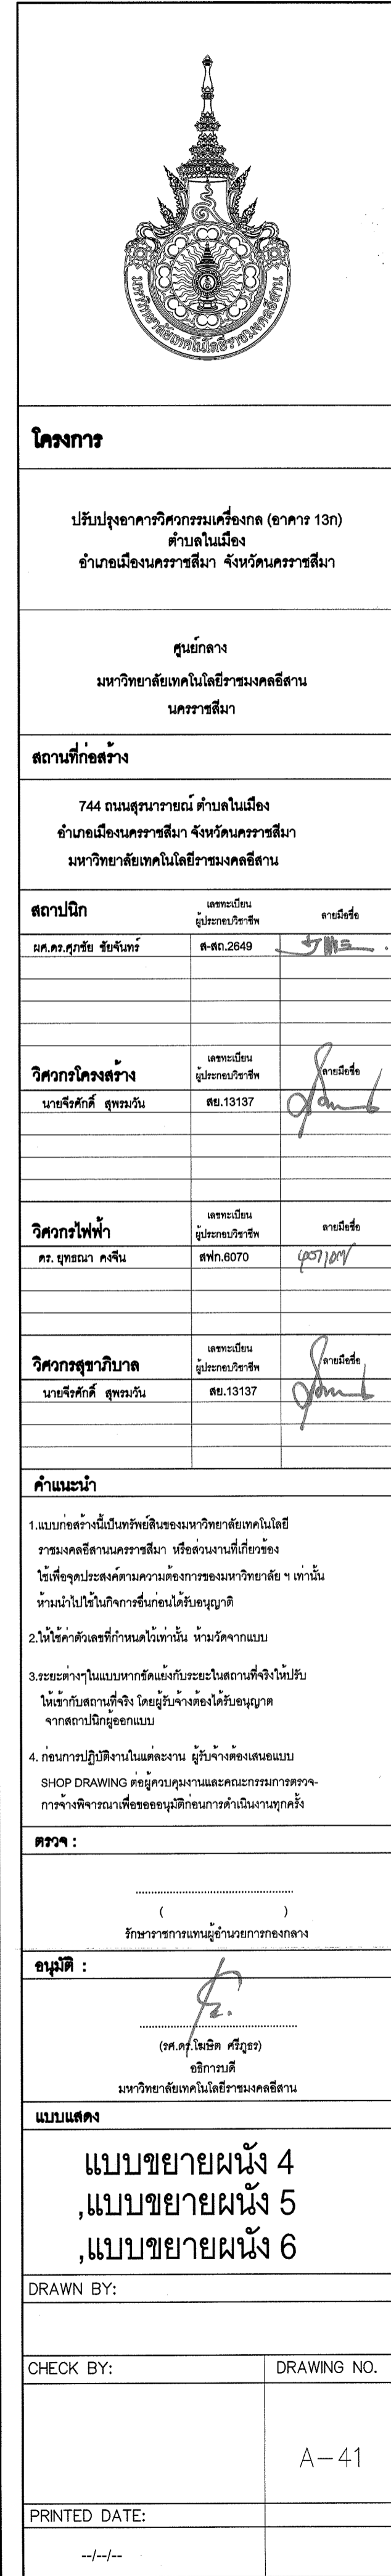 มหาวิทยาลัยเทคโนโลยีราชมงคลอีสาน
โครงการ
ปรับปรุงอาคารวิศวกรรมเครื่องกล (อาคาร 13ก)
ตำบลในเมือง
อำเภอเมืองนครราชสีมา จังหวัดนครราชสีมา
ศูนย์กลาง
มหาวิทยาลัยเทคโนโลยีราชมงคลอีสาน
นครราชสีมา
สถานที่ก่อสร้าง
744 ถนนสุรนารายณ์ ตำบลในเมือง
อำเภอเมืองนครราชสีมา จังหวัดนครราชสีมา
มหาวิทยาลัยเทคโนโลยีราชมงคลอีสาน
สถาปนิก เลขทะเบียน ผู้ประกอบวิชาชีพ ลายมือชื่อ
ผศ.ดร.ศุภชัย ชัยจันทร์ ส-สถ.2649
วิศวกรโครงสร้าง เลขทะเบียน ผู้ประกอบวิชาชีพ ลายมือชื่อ
นายจีรศักดิ์ สุพรมวัน สย.13137
วิศวกรไฟฟ้า เลขทะเบียน ผู้ประกอบวิชาชีพ ลายมือชื่อ
ดร. ยุทธณา คงจีน สฟก.6070
วิศวกรสุขาภิบาล เลขทะเบียน ผู้ประกอบวิชาชีพ ลายมือชื่อ
นายจีรศักดิ์ สุพรมวัน สย.13137
คำแนะนำ
1.แบบก่อสร้างนี้เป็นทรัพย์สินของมหาวิทยาลัยเทคโนโลยี
ราชมงคลอีสานนครราชสีมา หรือส่วนงานที่เกี่ยวข้อง
ใช้เพื่อจุดประสงค์ตามความต้องการของมหาวิทยาลัย ฯ เท่านั้น
ห้ามนำไปใช้ในกิจการอื่นก่อนได้รับอนุญาติ
2.ให้ใช้ค่าตัวเลขที่กำหนดไว้เท่านั้น ห้ามวัดจากแบบ
3.ระยะต่างๆในแบบหากขัดแย้งกับระยะในสถานที่จริงให้ปรับ
ให้เข้ากับสถานที่จริง โดยผู้รับจ้างต้องได้รับอนุญาต
จากสถาปนิกผู้ออกแบบ
4. ก่อนการปฏิบัติงานในแต่ละงาน ผู้รับจ้างต้องเสนอแบบ
SHOP DRAWING ต่อผู้ควบคุมงานและคณะกรรมการตรวจ-
การจ้างพิจารณาเพื่อขออนุมัติก่อนการดำเนินงานทุกครั้ง
ตรวจ :
( )
รักษาราชการแทนผู้อำนวยการกองกลาง
อนุมัติ :
(รศ.ดร.โฆษิต ศรีภูธร)
อธิการบดี
มหาวิทยาลัยเทคโนโลยีราชมงคลอีสาน
แบบแสดง
แบบขยายผนัง 4
,แบบขยายผนัง 5
,แบบขยายผนัง 6
DRAWN BY:
CHECK BY: DRAWING NO.
A-41
PRINTED DATE:
--/--/--